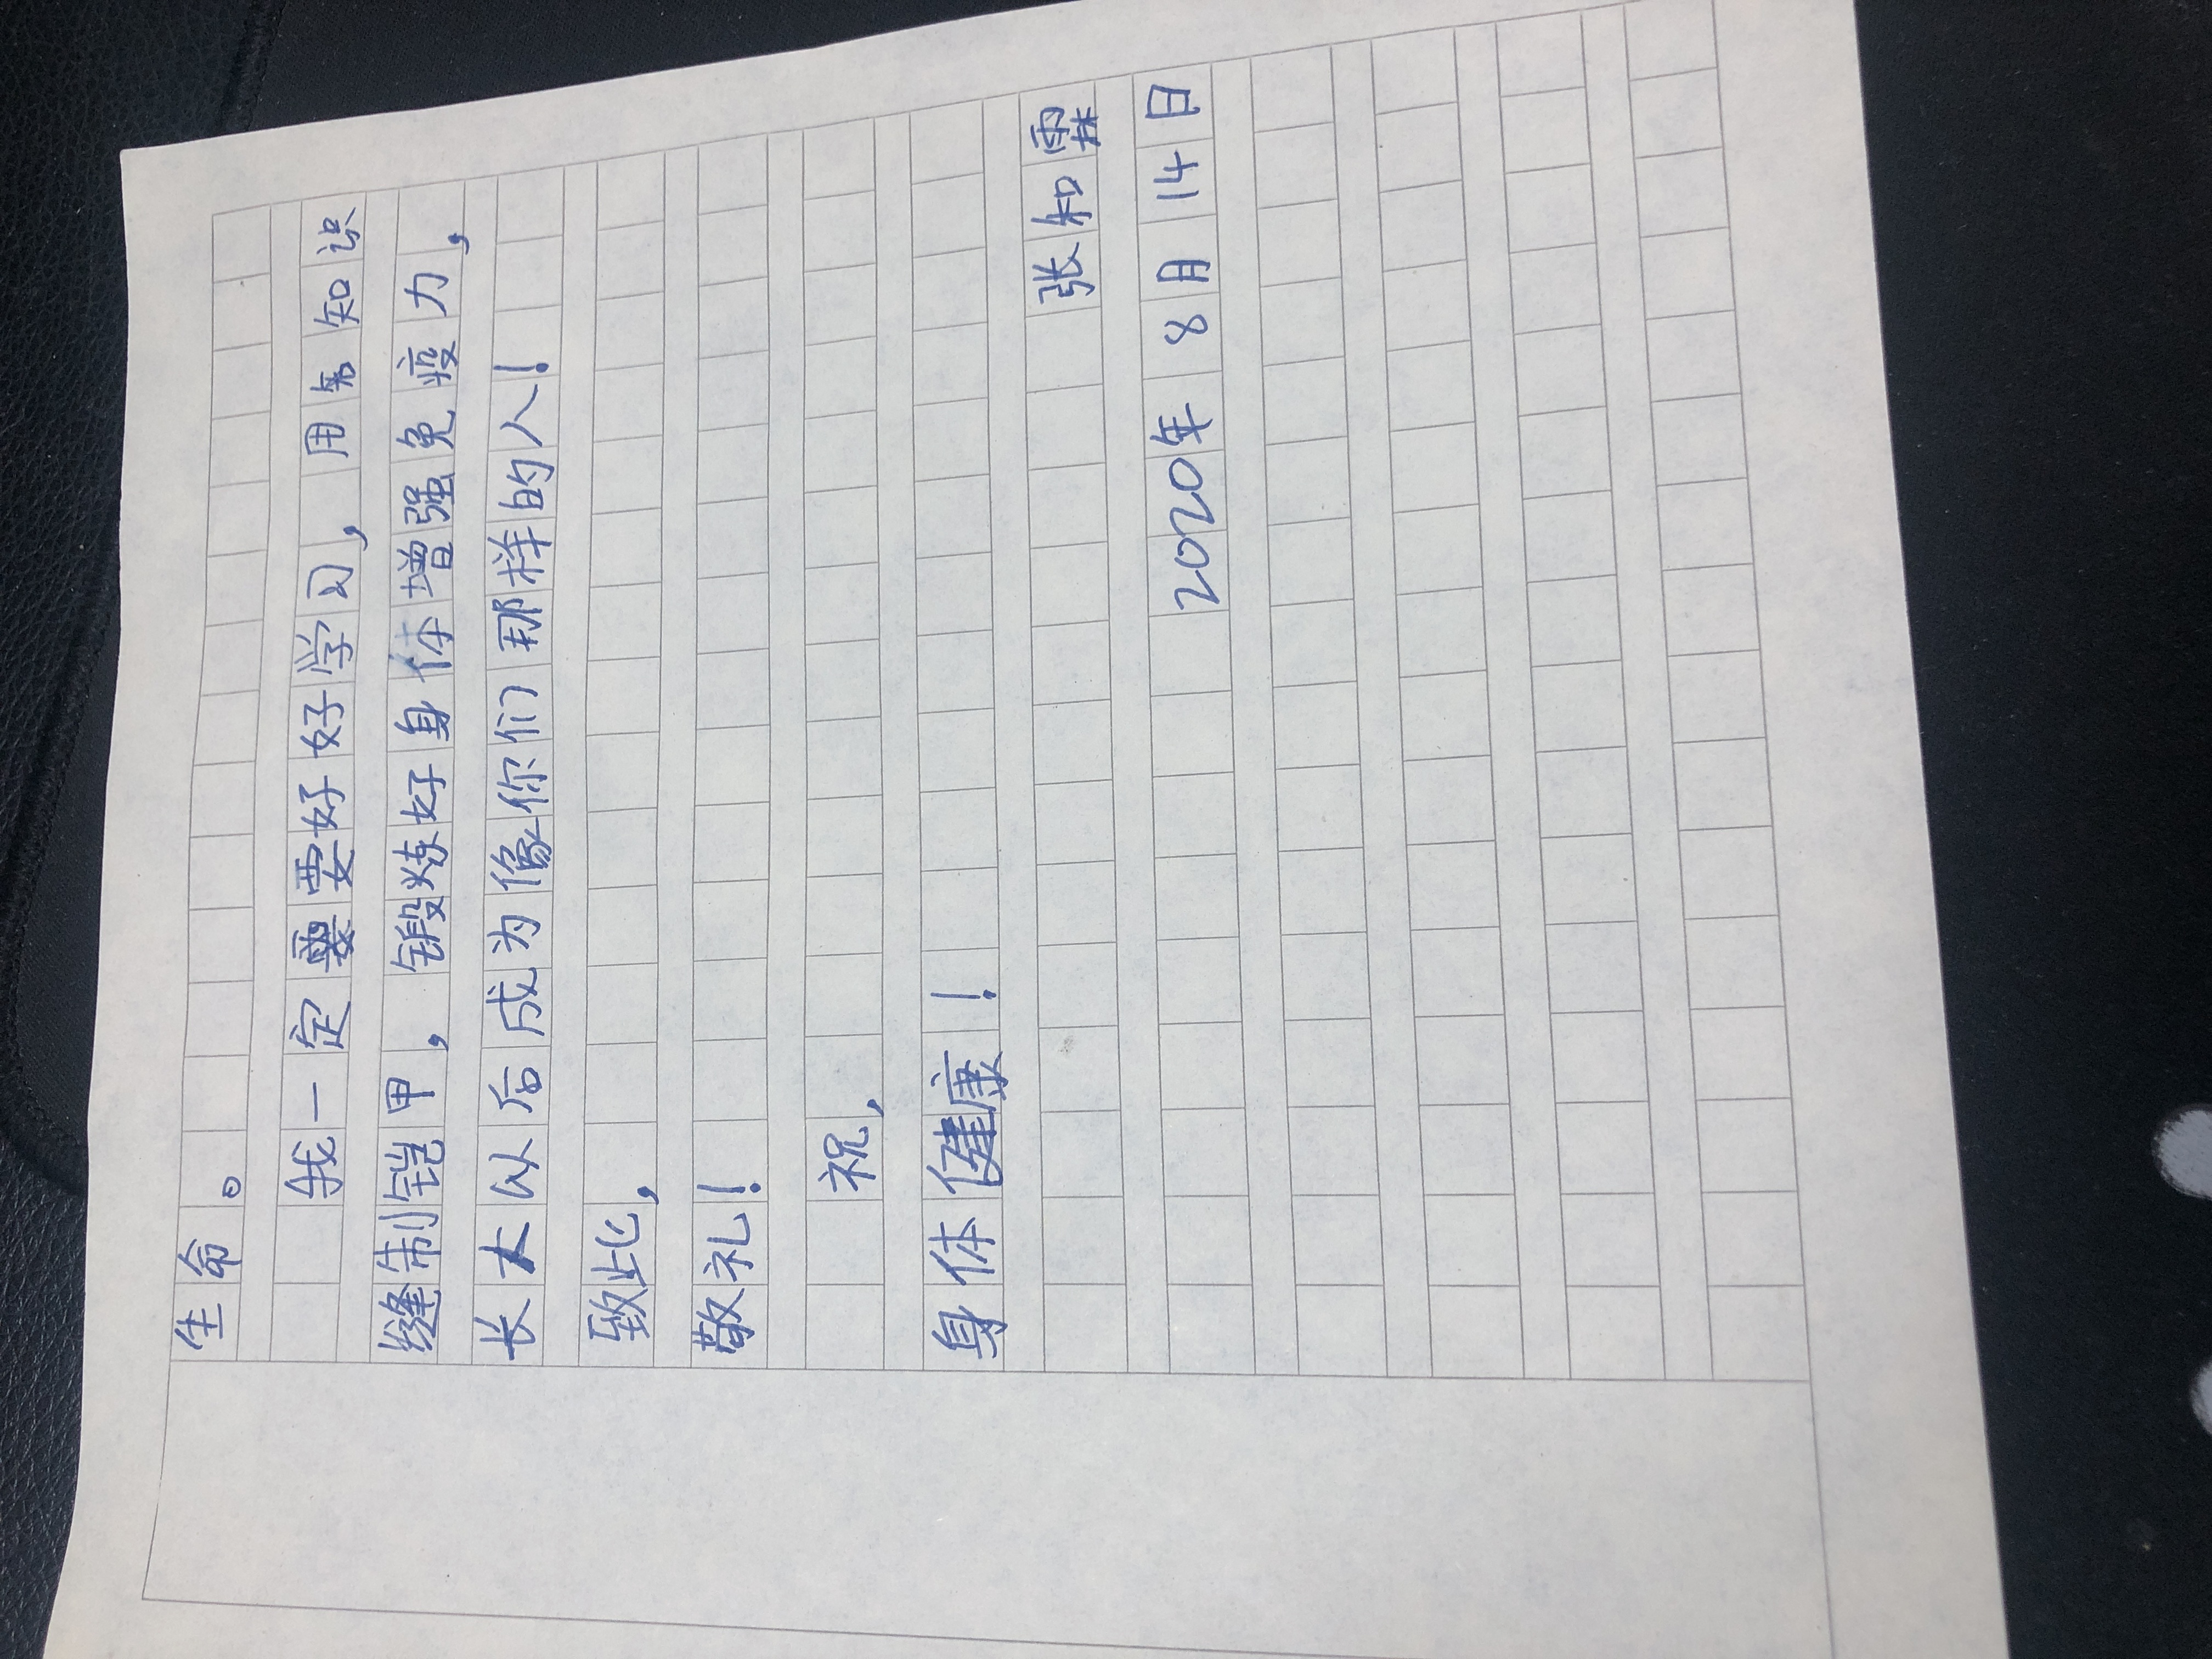 生命。
我一定要好好学习，用知识
缝制铠甲，锻炼好身体增强免疫力，
长大以后成为像你们那样的人！
致此，
敬礼！
祝，
身体健康！
张知霖
2020年8月14日